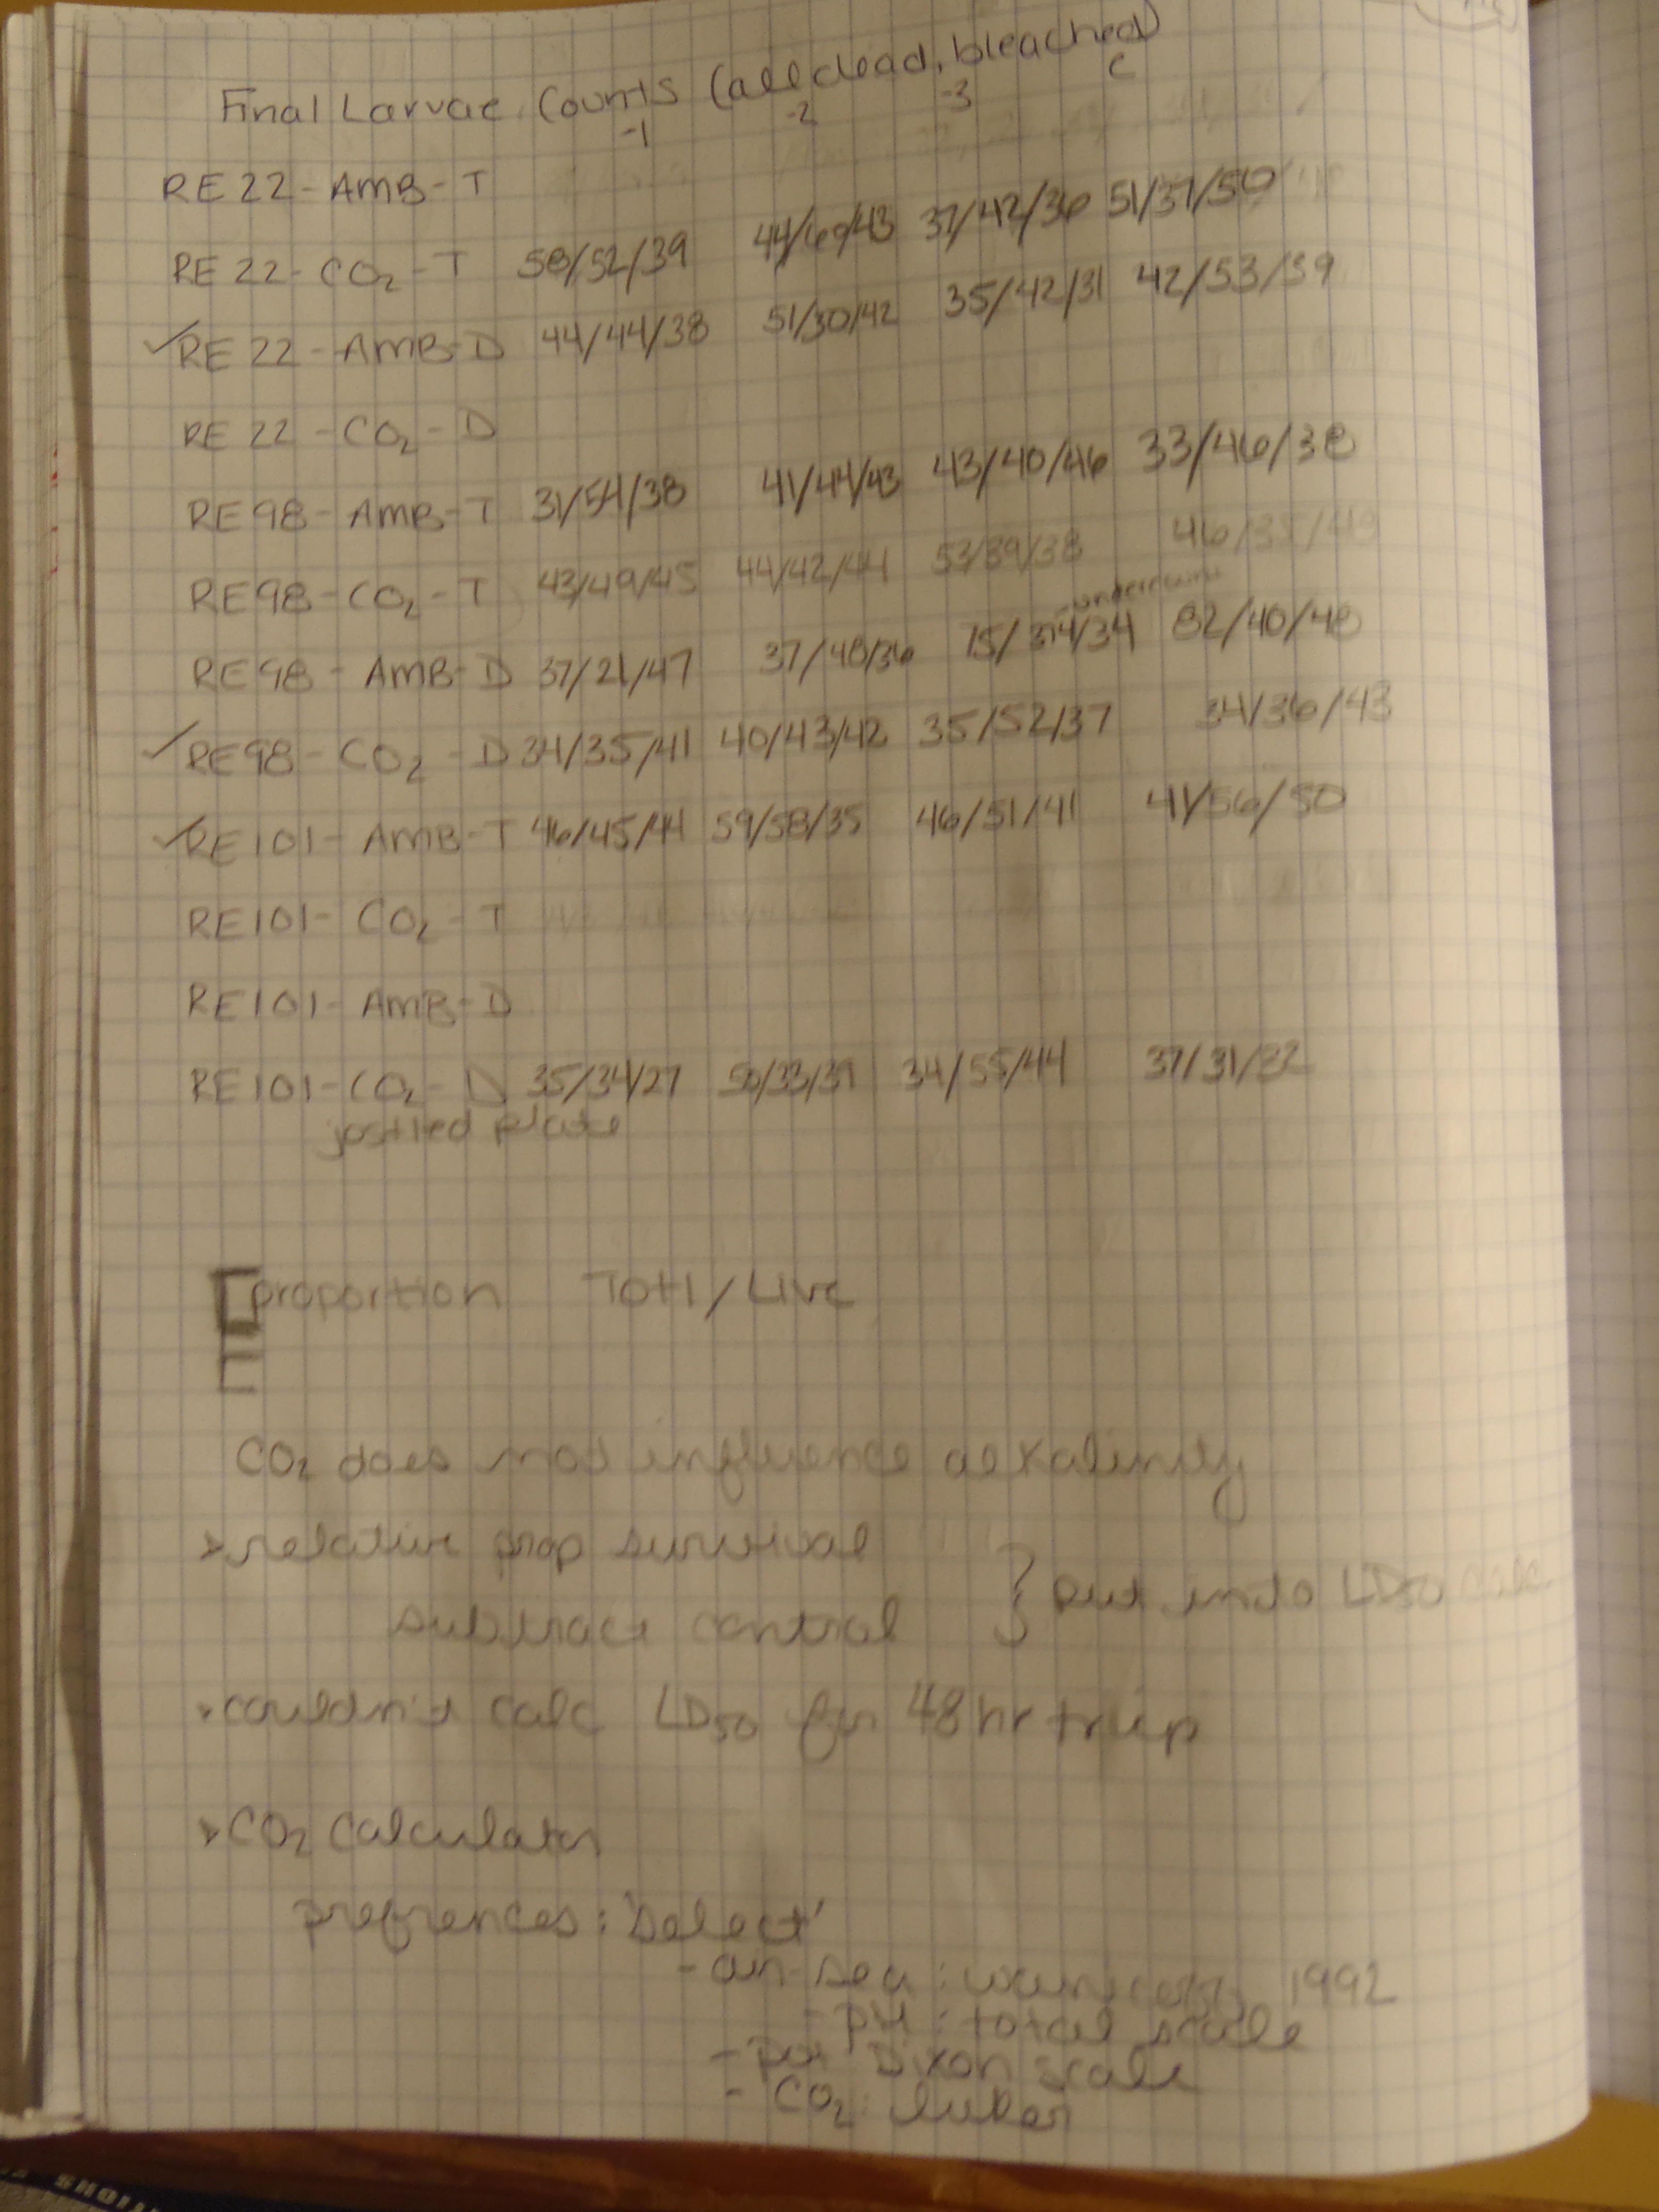 Final Larvae Counts (all dead, bleached)
-1 -2 -3 C
RE22-AMB-T
RE22-CO2-T 58/52/39 44/69/43 37/42/36 51/37/50
✓RE22-AMB-D 44/44/38 51/30/42 35/42/31 42/53/59
RE22-CO2-D
RE98-AMB-T 31/54/38 41/44/43 43/40/46 33/46/38
RE98-CO2-T 43/49/45 44/42/44 53/39/38 46/35/
RE98-AMB-D 37/21/47 37/48/36 /34 82/40/48
✓RE98-CO2-D 34/35/41 40/43/42 35/52/37 34/36/43
✓RE101-AMB-T 46/45/44 59/58/35 46/51/41 41/56/50
RE101-CO2-T
RE101-AMB-D
RE101-CO2-D 35/34/27 50/33/39 34/55/44 37/31/32
jostled plate
proportion Totl/Live
CO2 does not influence alkalinity
>relative prop survival
subtract control } put into LD50 calc
couldn't calc LD50 for 48hr trip
CO2 calculator
prefrences: 'select'
- air-sea: 1992
- pH: total scale
- Dixon scale
- CO2: luker